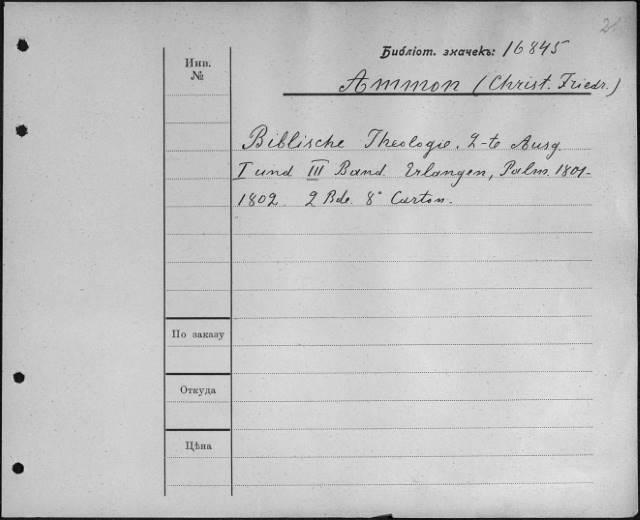 21
Библіот. значекъ: 16845
Инв.
№
Ammon (Christ. Friedr.)
Biblische Theologie. 2-te Ausg.
I und III Band. Erlangen, Palm. 1801-
1802. 2 Bde. 8° Carton.
По заказу
Откуда
Цѣна